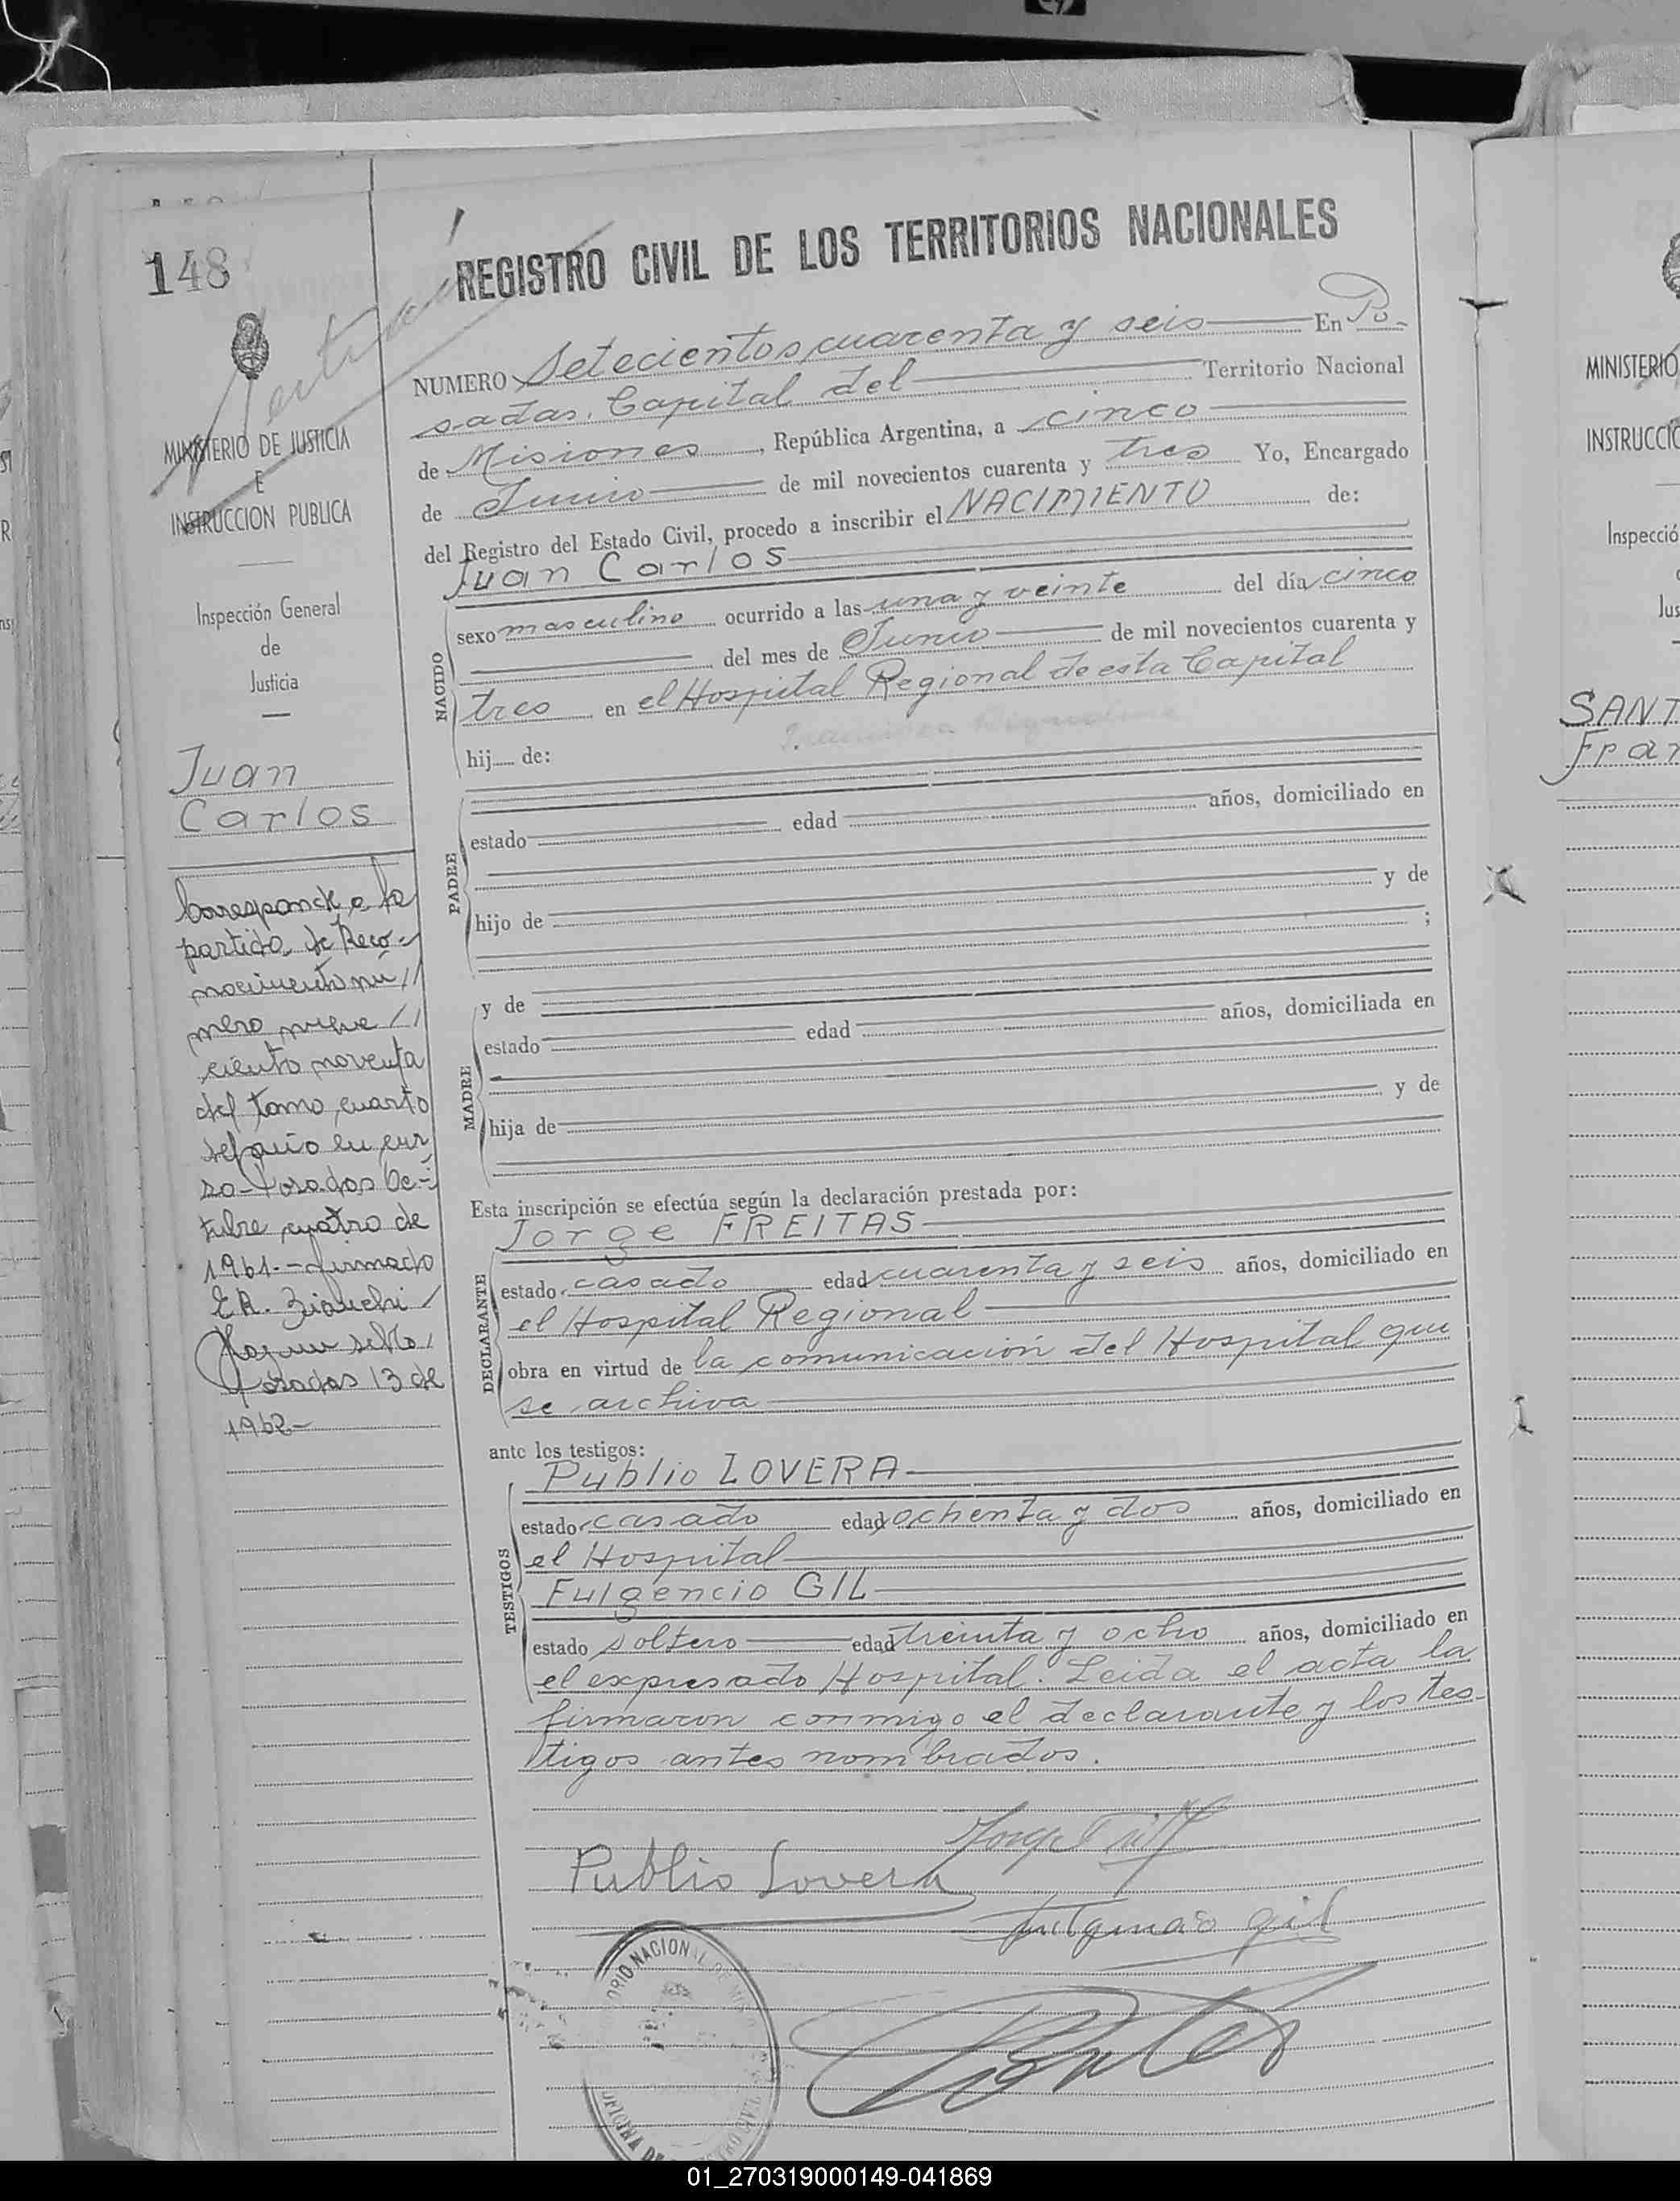 148
REGISTRO CIVIL DE LOS TERRITORIOS NACIONALES
NUMERO Setecientos cuarenta y seis En Po-
sadas. Capital del Territorio Nacional
de Misiones, República Argentina, a cinco
de Junio de mil novecientos cuarenta y tres Yo, Encargado
del Registro del Estado Civil, procedo a inscribir el NACIMIENTO de:
Juan Carlos
NACIDO
sexo masculino ocurrido a las una y veinte del día cinco
del mes de Junio de mil novecientos cuarenta y
tres en el Hospital Regional de esta Capital
hij de:
PADRE
estado edad años, domiciliado en
hijo de y de
;
y de
MADRE
estado edad años, domiciliada en
hija de y de
Esta inscripción se efectúa según la declaración prestada por:
Jorge FREITAS
DECLARANTE
estado casado edad cuarenta y seis años, domiciliado en
el Hospital Regional
obra en virtud de la comunicación del Hospital que
se archiva
ante los testigos:
Publio LOVERA
TESTIGOS
estado casado edad ochenta y dos años, domiciliado en
el Hospital
Fulgencio GIL
estado soltero edad treinta y ocho años, domiciliado en
el expresado Hospital. Leida el acta la
firmaron conmigo el declarante y los tes-
tigos antes nombrados.
Publio Lovera
Fulgencio Gil
MINISTERIO DE JUSTICIA
E
INSTRUCCION PUBLICA
Inspección General
de
Justicia
Juan
Carlos
Corresponde a la
partida de Reco-
nocimiento nú//
mero nueve //
ciento noventa
del tomo cuarto
del año en cur
so- Posadas Oc-
tubre cuatro de
1961.- firmado
E.R. Bianchi
Posadas 13 de
1962-
MINISTERIO
INSTRUCCIO
Inspecció
Jus
SANT
Fran
01_270319000149-041869